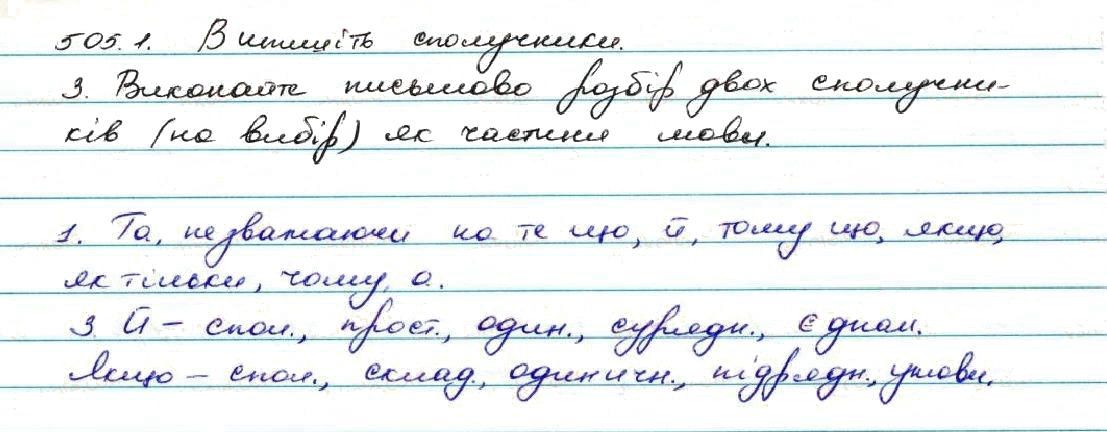 505.1. Випишіть сполучники.
3. Виконайте письмово розбір двох сполучни-
ків (на вибір) як частини мови.
1. Та, незважаючи на те що, й, тому що, якщо,
як тільки, чому, а.
3 Й – спол., прост., один., сурядн., єднал.
Якщо – спол., склад., одиничн., підрядн., умови.